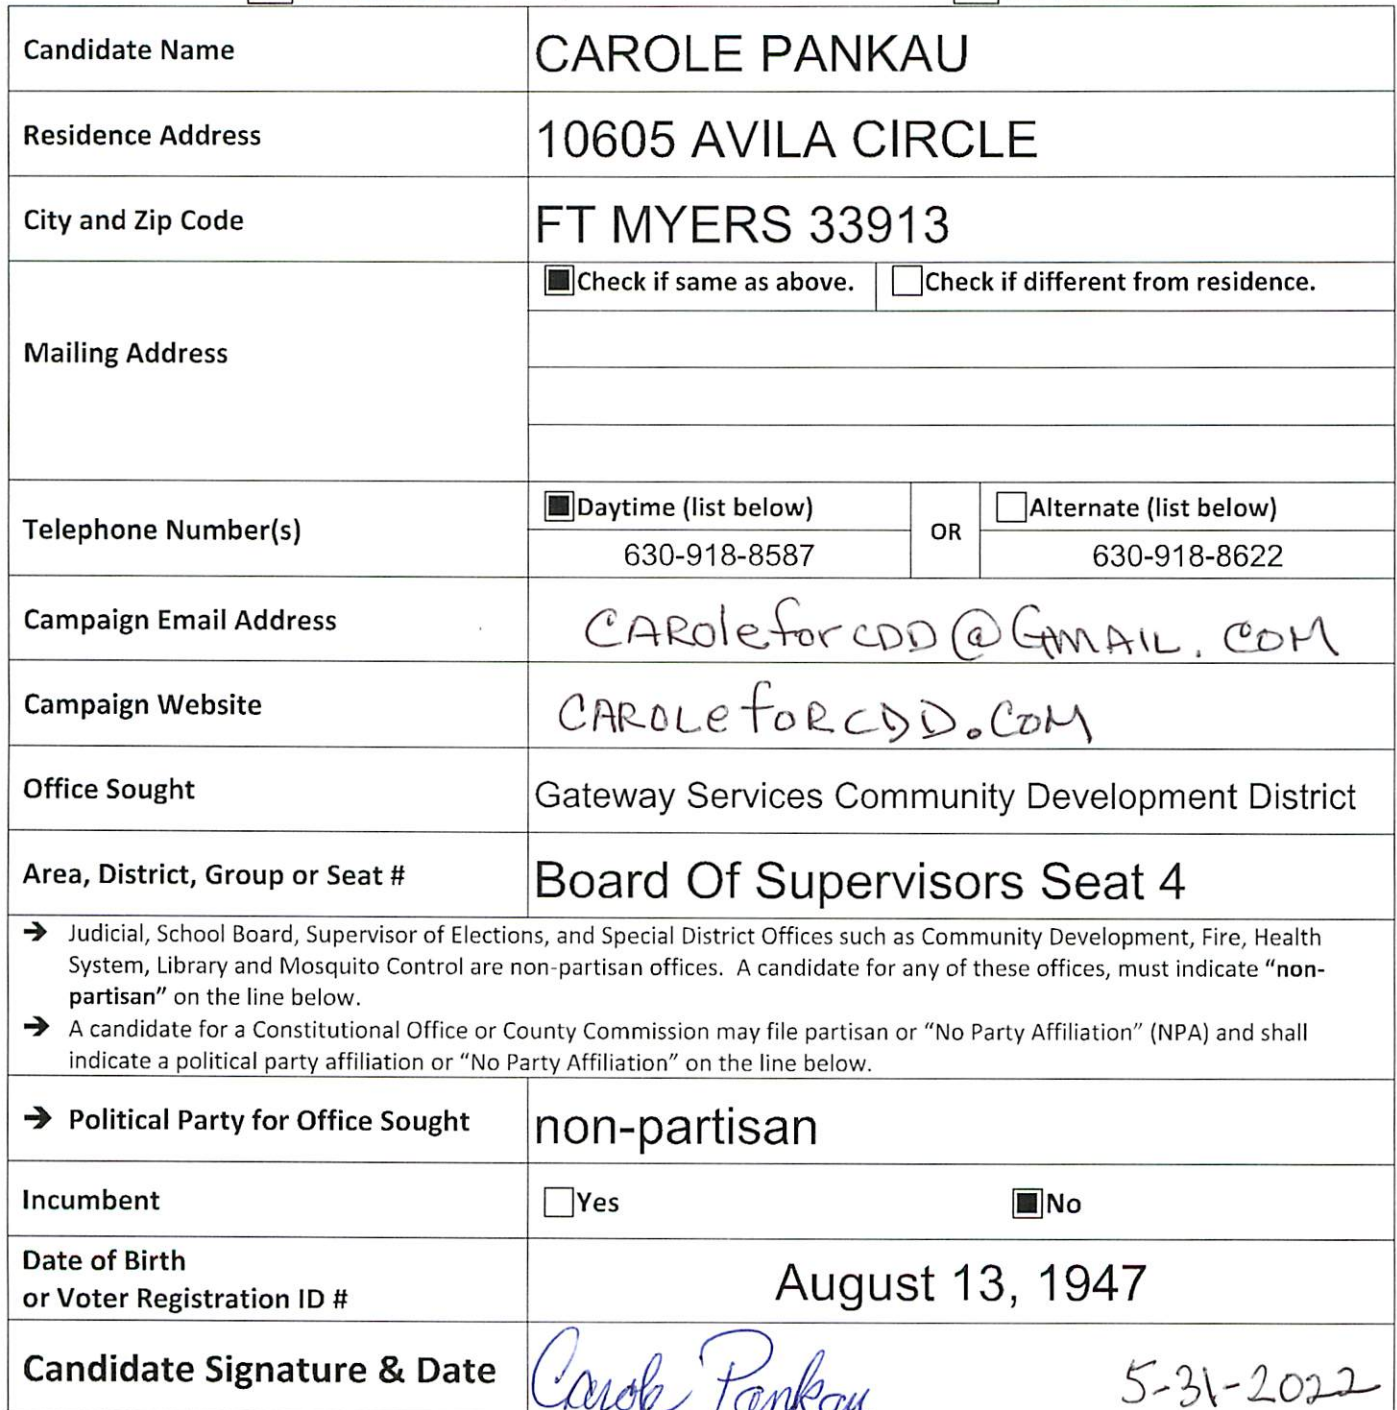 Candidate Name
CAROLE PANKAU
Residence Address
10605 AVILA CIRCLE
City and Zip Code
FT MYERS 33913
Mailing Address
Check if same as above.
Check if different from residence.
Telephone Number(s)
Daytime (list below)
630-918-8587
OR
Alternate (list below)
630-918-8622
Campaign Email Address
CAROleforCDD@GMAIL.COM
Campaign Website
CAROLeforCDD.COM
Office Sought
Gateway Services Community Development District
Area, District, Group or Seat #
Board Of Supervisors Seat 4
➔ Judicial, School Board, Supervisor of Elections, and Special District Offices such as Community Development, Fire, Health
System, Library and Mosquito Control are non-partisan offices. A candidate for any of these offices, must indicate “non-
partisan” on the line below.
➔ A candidate for a Constitutional Office or County Commission may file partisan or “No Party Affiliation” (NPA) and shall
indicate a political party affiliation or “No Party Affiliation” on the line below.
➔ Political Party for Office Sought
non-partisan
Incumbent
Yes
No
Date of Birth
or Voter Registration ID #
August 13, 1947
Candidate Signature & Date
Carole Pankau
5-31-2022